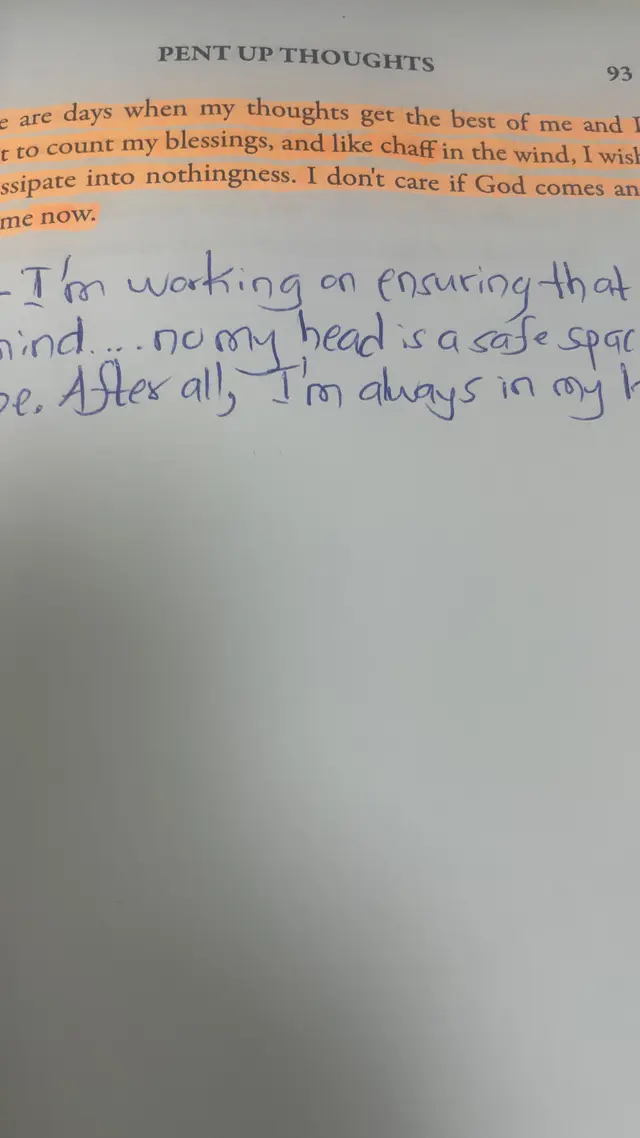 PENT UP THOUGHTS
93
e are days when my thoughts get the best of me and I
t to count my blessings, and like chaff in the wind, I wish
ssipate into nothingness. I don't care if God comes an
me now.
- I'm working on ensuring that
mind.... no my head is a safe spac
be. After all, I'm always in my h